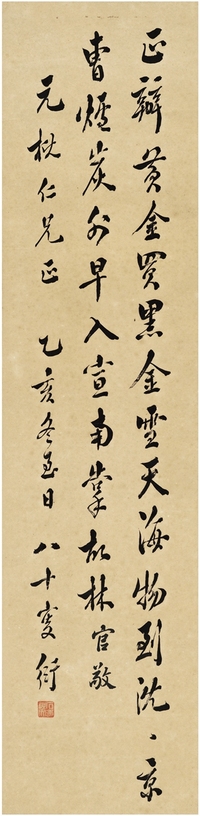 正辦黃金買黑金雪天海物到沈〻京
曹爐炭外早入宣南掌故林官敬
元仁兄正 乙亥冬至日 八十叟衍